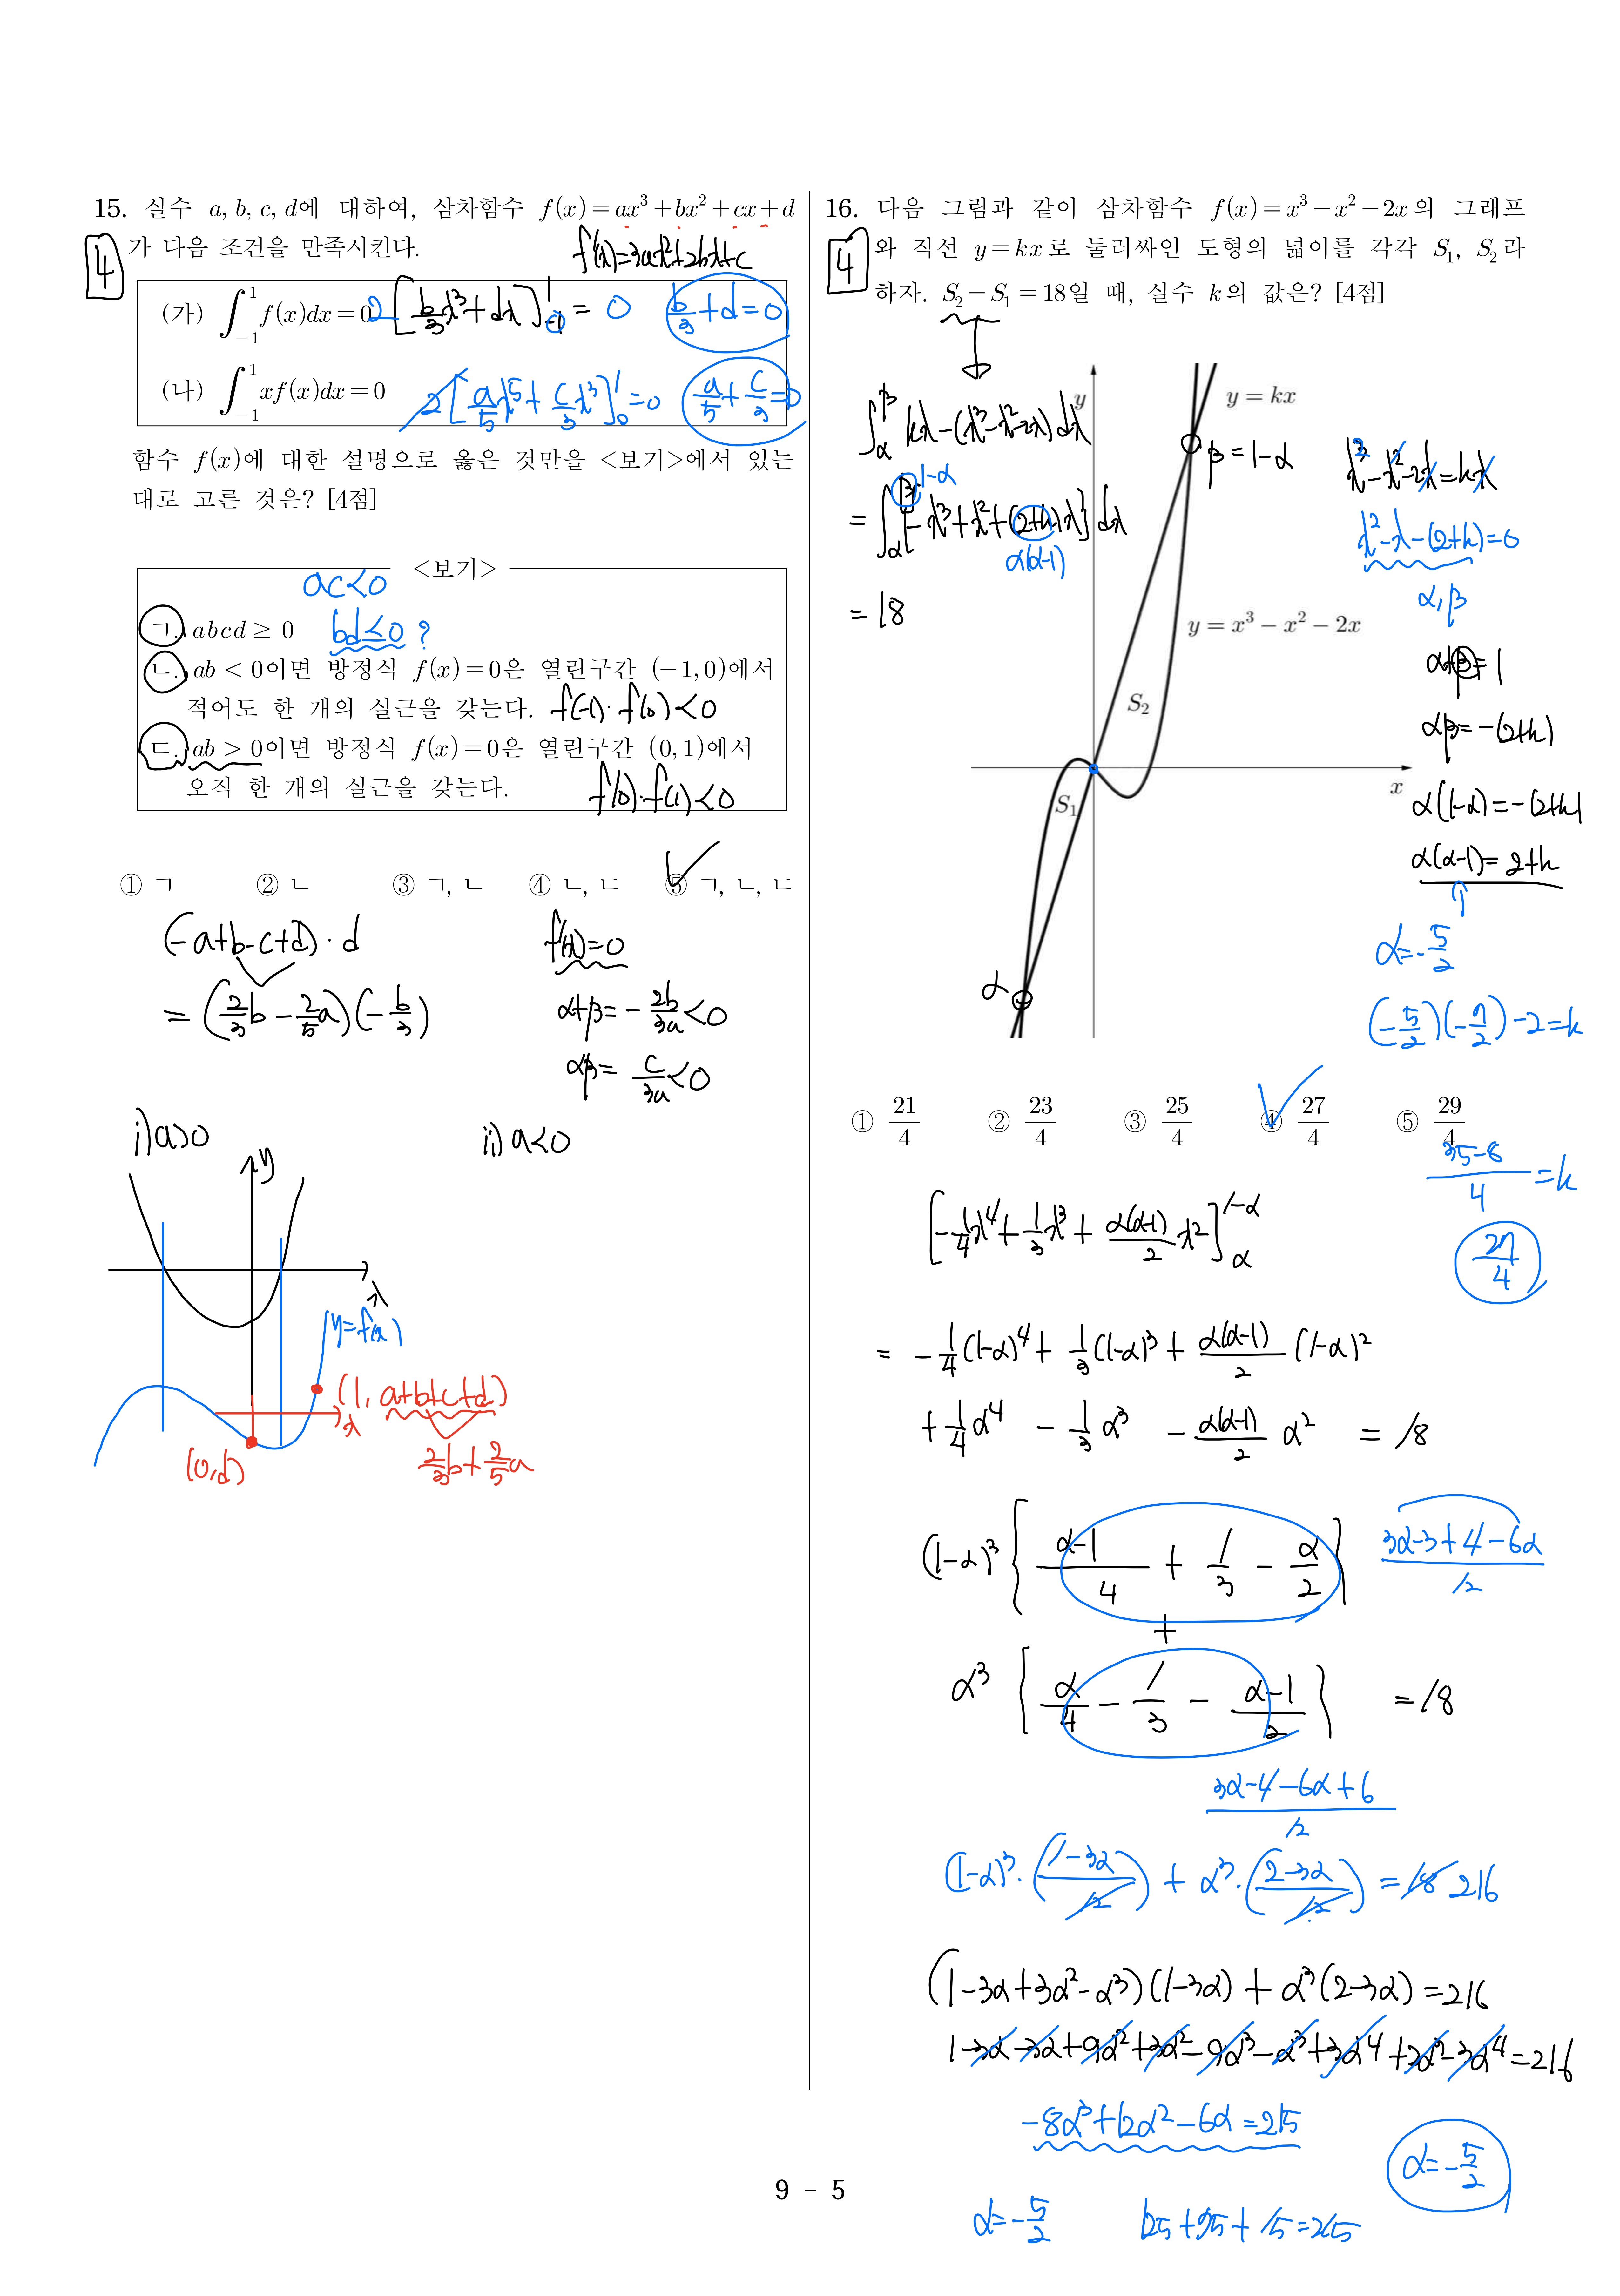 15. 실수 a, b, c, d에 대하여, 삼차함수 f(x)=ax³+bx²+cx+d
가 다음 조건을 만족시킨다.
4
f'(x)=3ax²+2bx+c
(가) ∫₋₁¹ f(x)dx=0
2[b/3 x³+dx]₀¹ = 0
b/3+d=0
(나) ∫₋₁¹ xf(x)dx=0
2[a/5 x⁵+c/3 x³]₀¹=0
a/5+c/3=0
함수 f(x)에 대한 설명으로 옳은 것만을 <보기>에서 있는
대로 고른 것은? [4점]
<보기>
ac<0
ㄱ. abcd ≥ 0
bd≤0 ?
ㄴ. ab < 0이면 방정식 f(x)=0은 열린구간 (-1, 0)에서
적어도 한 개의 실근을 갖는다.
f(-1)·f(0)<0
ㄷ. ab > 0이면 방정식 f(x)=0은 열린구간 (0, 1)에서
오직 한 개의 실근을 갖는다.
f(0)·f(1)<0
① ㄱ ② ㄴ ③ ㄱ, ㄴ ④ ㄴ, ㄷ ⑤ ㄱ, ㄴ, ㄷ
(-a+b-c+d)·d
=(2/3 b - 2/5 a)(-b/3)
f'(x)=0
α+β=-2b/3a<0
αβ=c/3a<0
i) a>0
ii) a<0
y
x
y=f(x)
(1, a+b+c+d)
x
(0,d)
2/3 b+2/5 a
16. 다음 그림과 같이 삼차함수 f(x)=x³-x²-2x의 그래프
와 직선 y=kx로 둘러싸인 도형의 넓이를 각각 S₁, S₂라
하자. S₂-S₁=18일 때, 실수 k의 값은? [4점]
4
y
y=kx
∫αβ kx-(x³-x²-2x)dx
β=1-α
x³-x²-2x=kx
1-α
=∫αβ{-x³+x²+(2+k)x}dx
α(α-1)
x²-x-(2+k)=0
α, β
=18
y=x³-x²-2x
α+β=1
S₂
αβ=-(2+k)
x
S₁
α(1-α)=-(2+k)
α(α-1)=2+k
α=-5/2
α
(-5/2)(-7/2)-2=k
① 21/4 ② 23/4 ③ 25/4 ④ 27/4 ⑤ 29/4
(35-8)/4=k
27/4
[-1/4 x⁴+1/3 x³+α(α-1)/2 x²]α^(1-α)
= -1/4(1-α)⁴+1/3(1-α)³+α(α-1)/2 (1-α)²
+1/4 α⁴ - 1/3 α³ - α(α-1)/2 α² = 18
(1-α)³{(α-1)/4 + 1/3 - α/2}
(3α-3+4-6α)/12
+
α³{α/4 - 1/3 - (α-1)/2} =18
(3α-4-6α+6)/12
(1-α)³·((1-3α)/12) + α³·((2-3α)/12) = 18 216
(1-3α+3α²-α³)(1-3α)+α³(2-3α)=216
1-3α-3α+9α²+3α²-9α³-α³+3α⁴+2α³-3α⁴=216
-8α³+12α²-6α=215
α=-5/2
α=-5/2
125+75+15=215
9 - 5